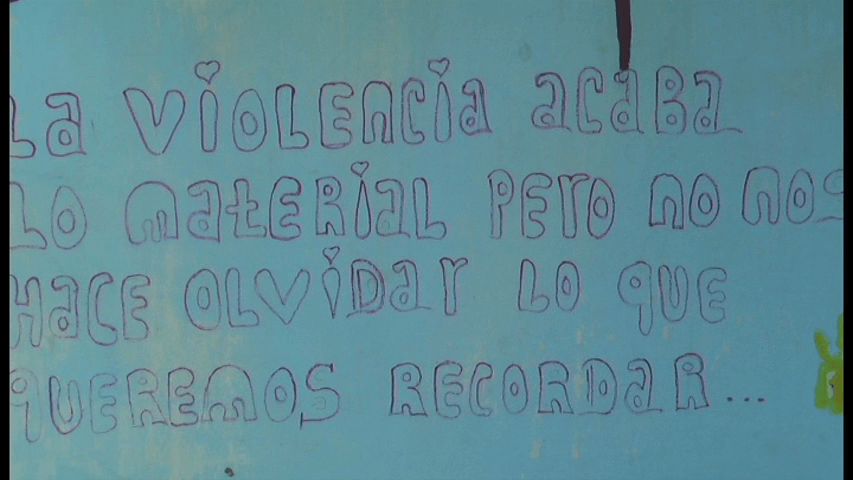 La violencia acaba
lo material pero no nos
hace olvidar lo que
queremos recordar...